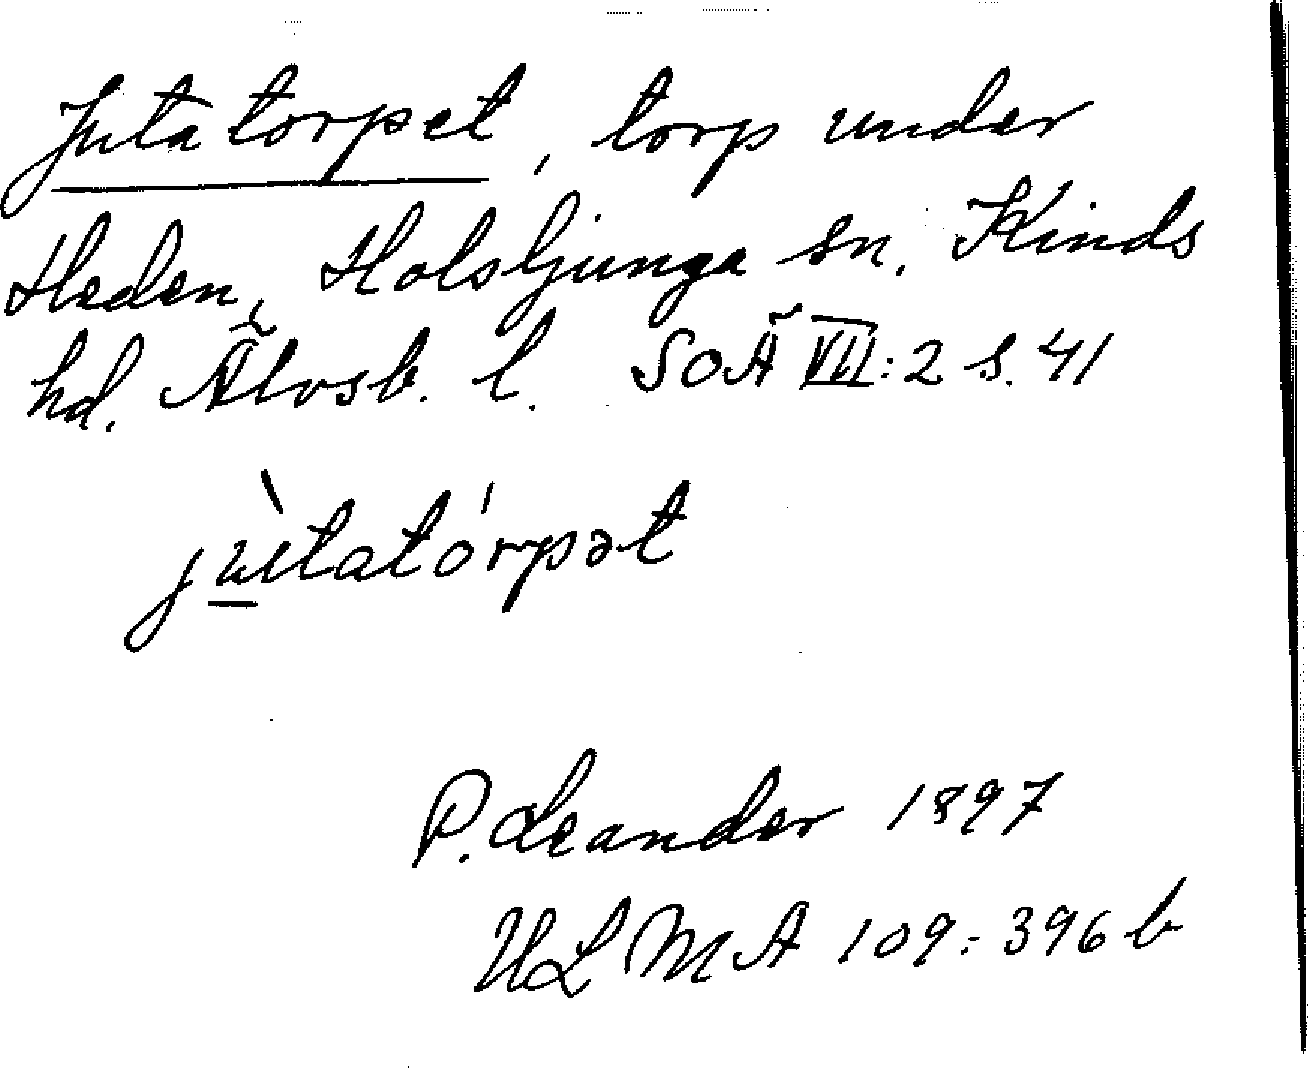 Jutatorpet, torp under
Heden, Holsljunga sn. Kinds
hd. Älvsb. l. SOÄ VII:2 s. 41
jùtatórpət
P. Leander 1897
ULMA 109:396 b